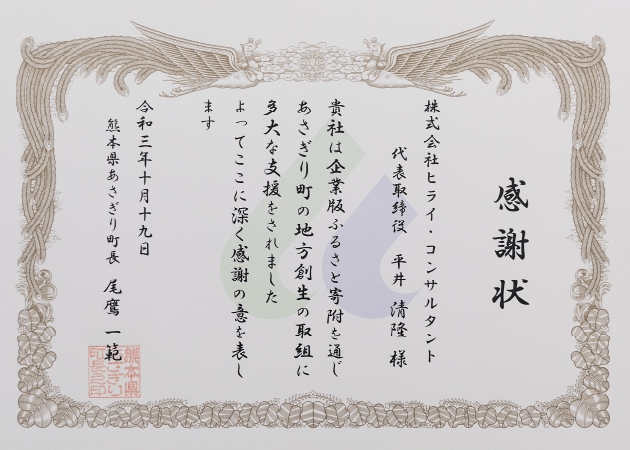 感謝状
株式会社ヒライ・コンサルタント
代表取締役 平井 清隆 様
貴社は企業版ふるさと寄附を通じ
あさぎり町の地方創生の取組に
多大な支援をされました
よってここに深く感謝の意を表し
ます
令和三年十月十九日
熊本県あさぎり町長 尾鷹 一範
熊本県
あさぎり
町長之印